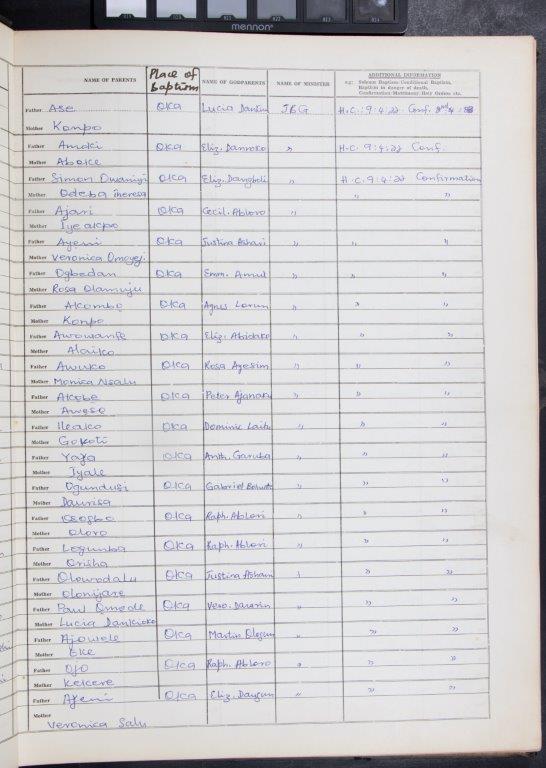 mennon
NAME OF PARENTS Place of baptism NAME OF GODPARENTS NAME OF MINISTER ADDITIONAL INFORMATION
e.g: Solemn Baptism Conditional Baptism,
Baptism in danger of death,
Confirmation Matrimony, Holy Orders etc.
Father Ase OKA Lucia JBG H.C. 9:4:22 Conf.
Mother Konpo
Father Amoki OKA Eliz. Danroko " H.C. 9:4:22 Conf.
Mother Aboke
Father Simon OKA Eliz. " H.C. 9:4:22 Confirmation
Mother Odeba Theresa " "
Father Ajari OKA Cecil. Abloro "
Mother Iye akpo
Father Ayeni OKA Justina Ashari " " "
Mother Veronica Omoyej.
Father Ogbedan OKA Emm. Amul " " "
Mother Rosa Olamuju
Father Akombo OKA Agnes Lorun " " "
Mother Konpo
Father Awowanfe OKA Eliz. Abidako " " "
Mother Alaiko
Father Awuko OKA Rosa Ayesim " " "
Mother Monica Nsalu
Father Akobe OKA Peter Ajanaku " " "
Mother Awese
Father Ileako OKA Dominic Laitu " " "
Mother Gokoti
Father Yaya OKA Anth. Garuba " " "
Mother Iyale
Father Ogundusi OKA Gabriel " " "
Mother Daurisa
Father Osogbo OKA Raph. Ablori " " "
Mother Oloro
Father Legunba OKA Raph. Ablori " " "
Mother Orisha
Father Olowodalu OKA Justina Asham " " "
Mother Olonijare
Father Paul Omode OKA Vero. " " "
Mother Lucia Dankioko
Father Ajowole OKA Martin " " "
Mother Eke
Father Ojo OKA Raph. Abloro " " "
Mother Kekere
Father Ayeni OKA Eliz. " " "
Mother
Veronica Salu